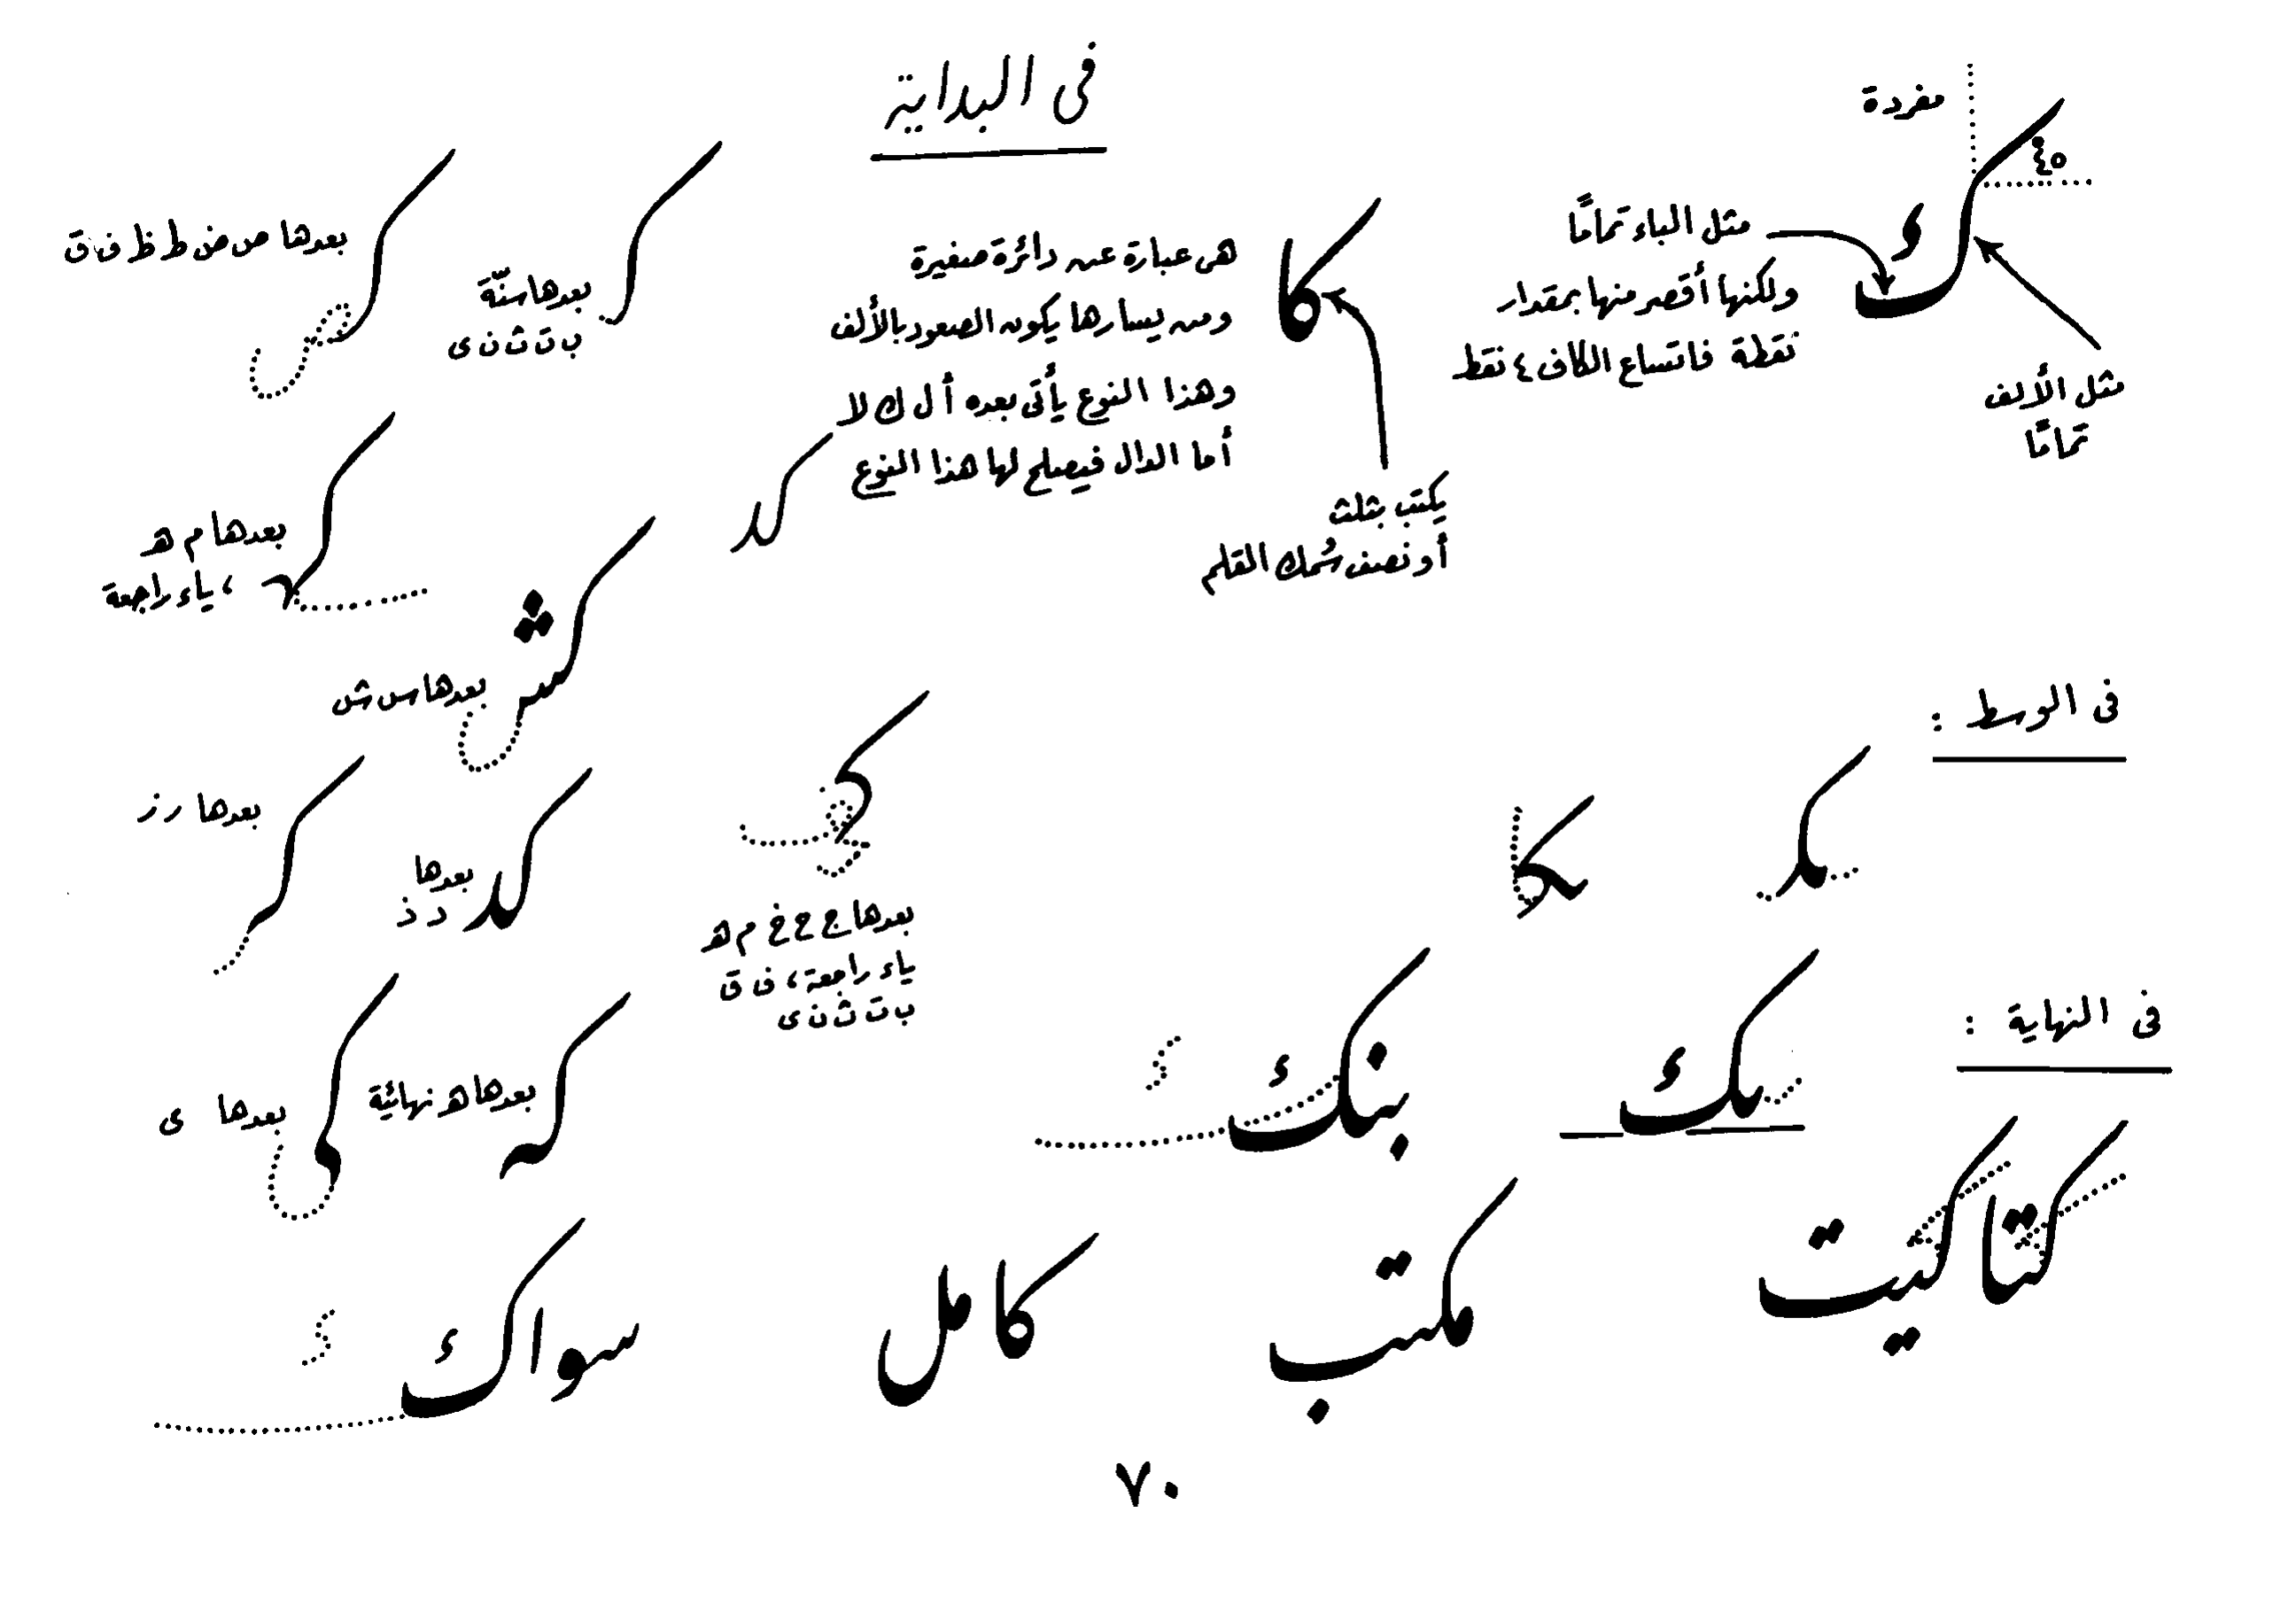 فى البداية
مفردة
٤٥
ك
مثل الباء تمامًا
ولكنها أقصر منها بمقدار
نقطة فاتساع الكاف ٤ نقط
مثل الألف
تمامًا
كا
هى عبارة عن دائرة صغيرة
ومن يسارها يكون الصعود بالألف
وهذا النوع يأتى بعده أ ل ك لا
أما الدال فيصلح لها هذا النوع
كد
يكتب بثلث
أو نصف سُمك القلم
بعدها سنّة
ب ت ث ن ى
بعدها ص ض ط ظ ف ق
بعدها م ه
، ياء راجعة
بعدها س ش
بعدها
د ذ
بعدها ر ز
بعدها ج ح خ م ه
ياء راجعة ، ف ق
ب ت ث ن ى
بعدها ه نهائية
بعدها ى
فى الوسط :
فى النهاية :
بنك
كتاكيت
مكتب
كامل
سواك
٧٠